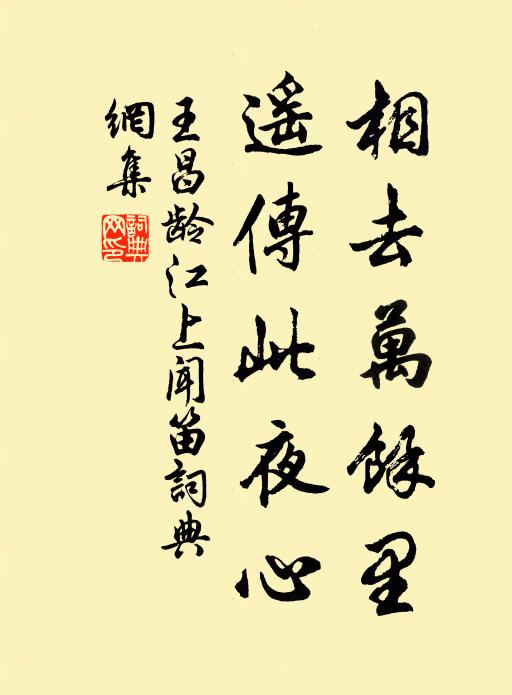 相去萬餘里
遥傳此夜心
王昌龄江上闻笛詞典
網集
詞典
网印